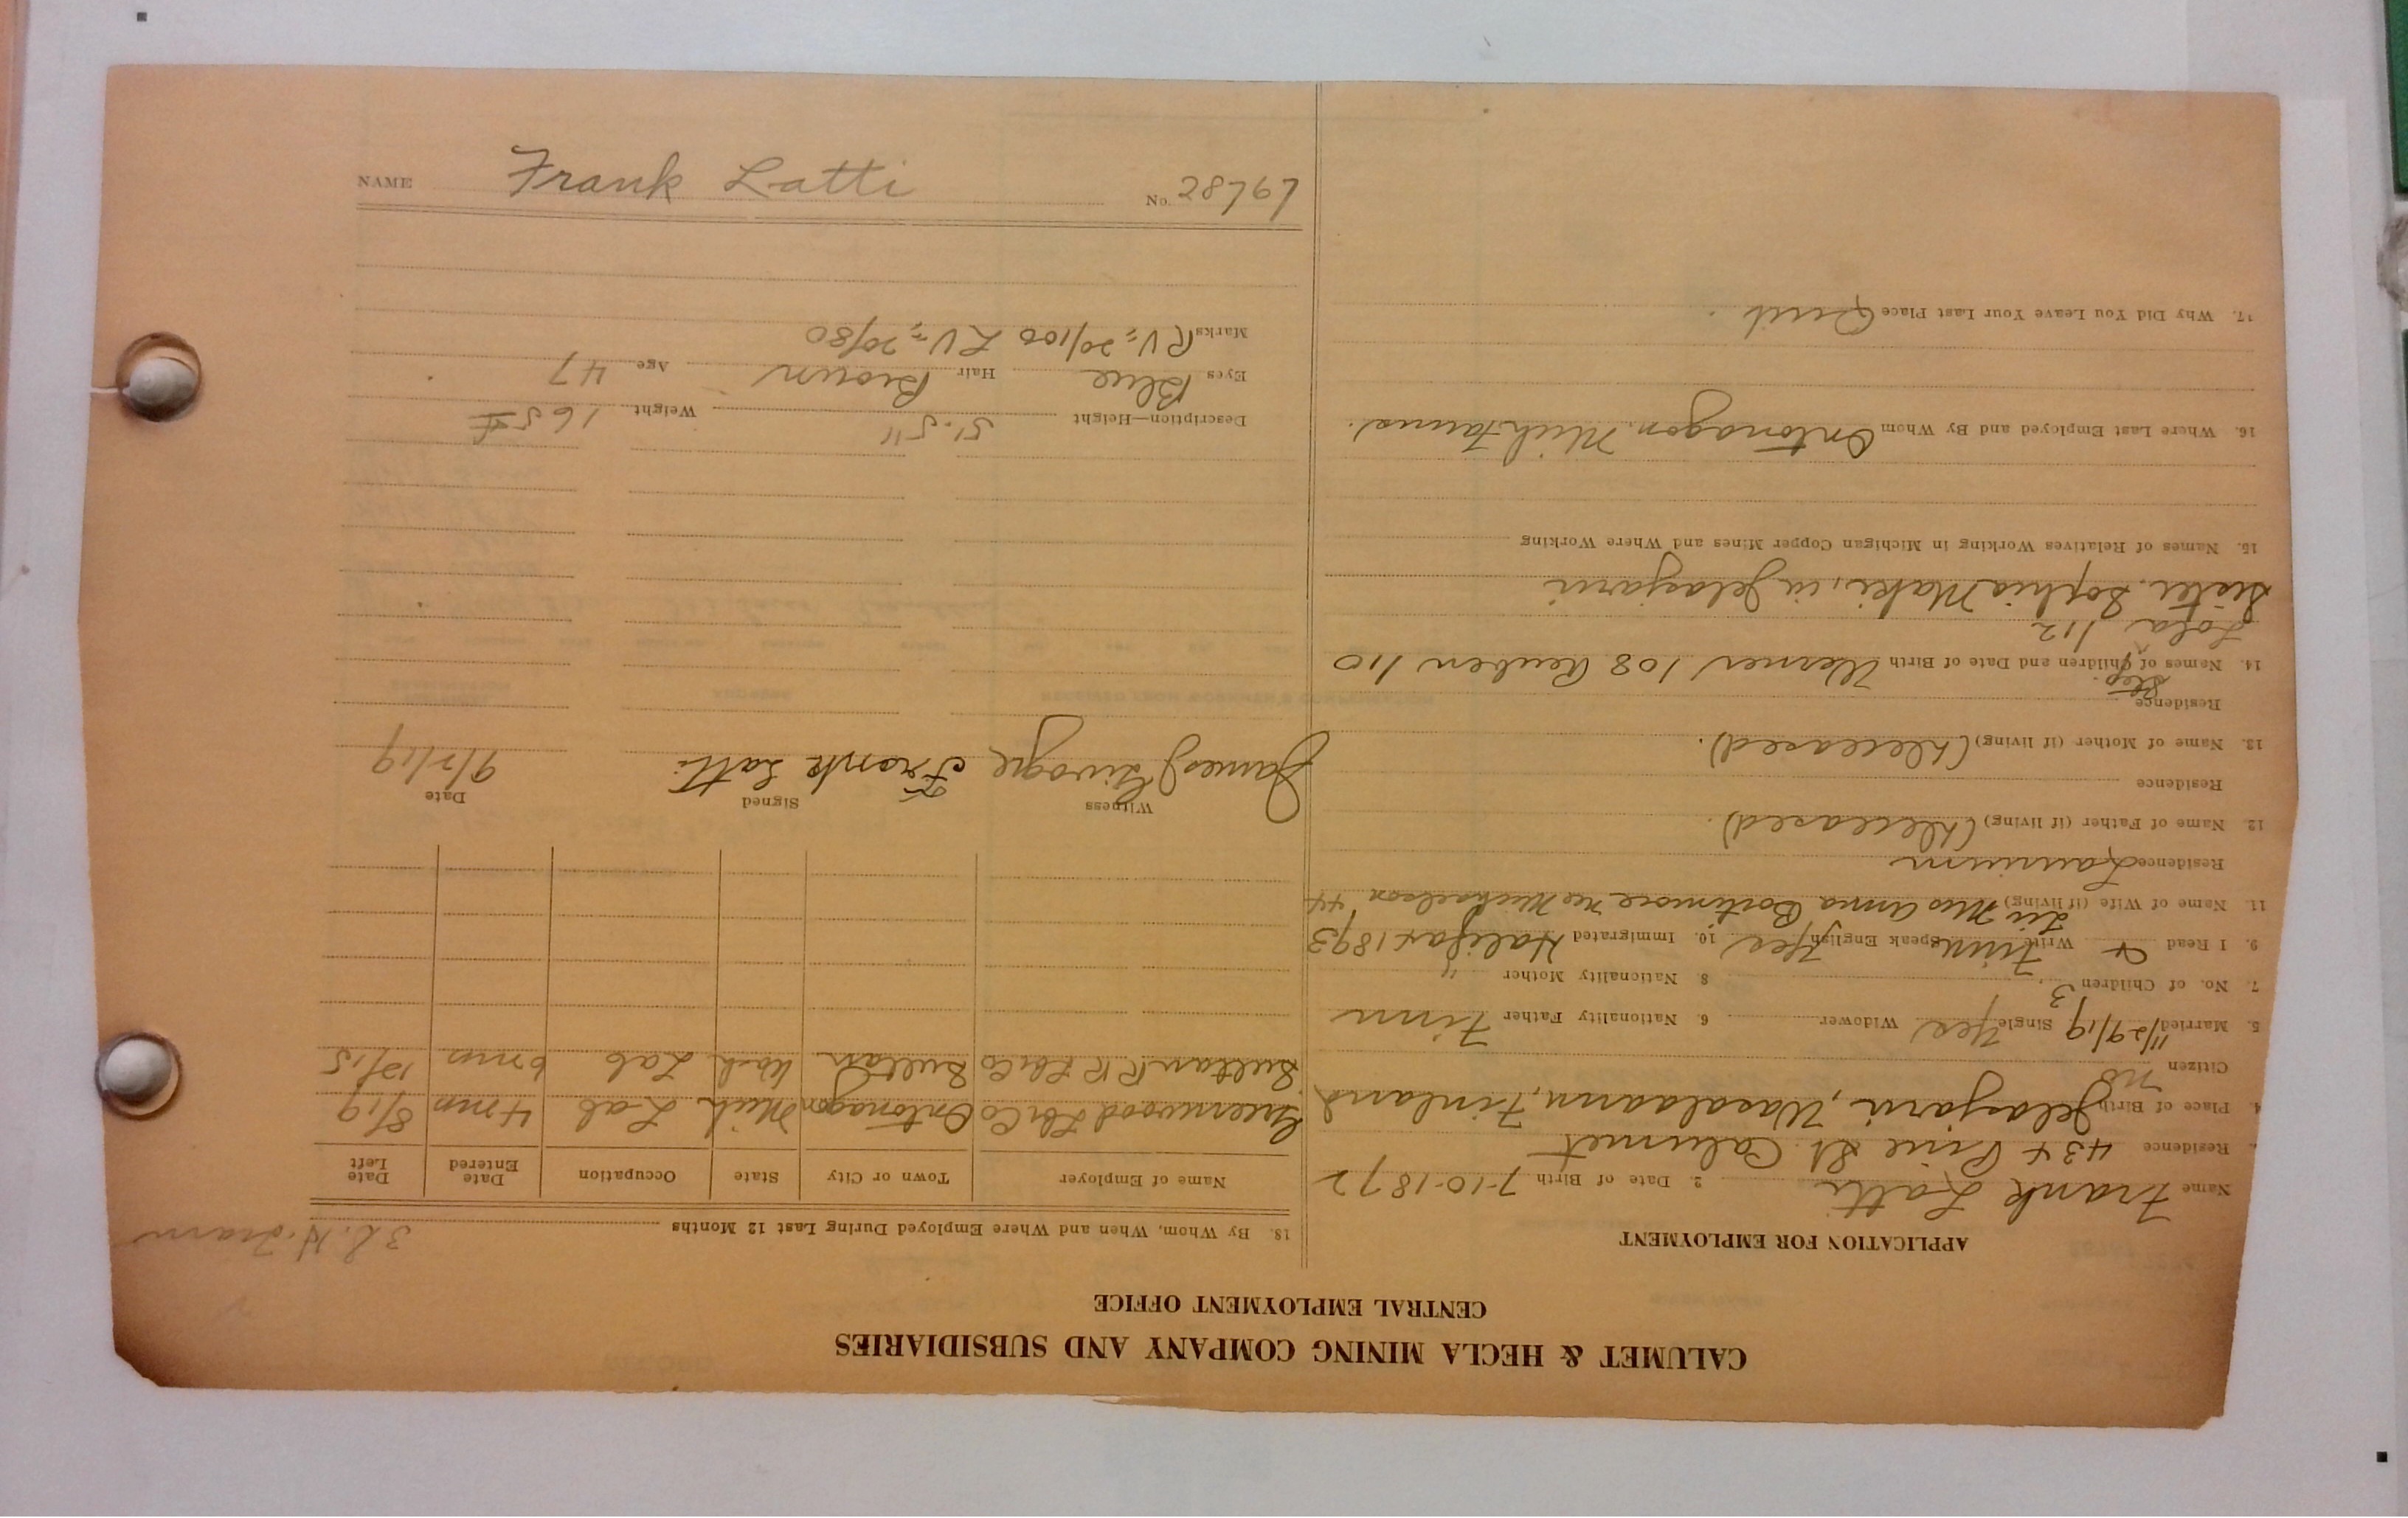 CALUMET & HECLA MINING COMPANY AND SUBSIDIARIES
CENTRAL EMPLOYMENT OFFICE
APPLICATION FOR EMPLOYMENT
Name Frank Latti 2. Date of Birth 7-10-1872
Residence 434 Pine St. Calumet
4. Place of Birth Jelasjarvi, Wasalaani, Finland
Citizen no
5. Married 11/29/19 Single Yes Widower 6. Nationality Father Finn
7. No. of Children 3 8 Nationality Mother "
9. I Read & Write Finn Speak English Yes 10. Immigrated Halifax 1893
11. Name of Wife (if living) Mrs Anna Bortimore nee Michaelson 44
Residence Laurium
12. Name of Father (if living) (Deceased).
Residence
13. Name of Mother (if living) (Deceased).
Residence
14. Names of Step Children and Date of Birth Werner / 08 Reuben / 10
Lola / 12
Sister. Sophia Maki, in Jelasjarvi
15. Names of Relatives Working in Michigan Copper Mines and Where Working
16. Where Last Employed and By Whom Ontonagon, Mich
17. Why Did You Leave Your Last Place Quit
18. By Whom, When and Where Employed During Last 12 Months 32.
Name of Employer Town or City State Occupation Date Entered Date Left
Greenwood Lbr Co Ontonagon Mich Lab 4 mn 8/19
Sultan R R Lbr Co Sultan Wash Lab 6 mn 12/15
Witness Signed Date
James Frank Latti 9/2/19
Description—Height 5'-5" Weight 165#
Eyes Blue Hair Brown Age 47
Marks RV = 20/100 LV = 20/80
NAME Frank Latti No. 28767